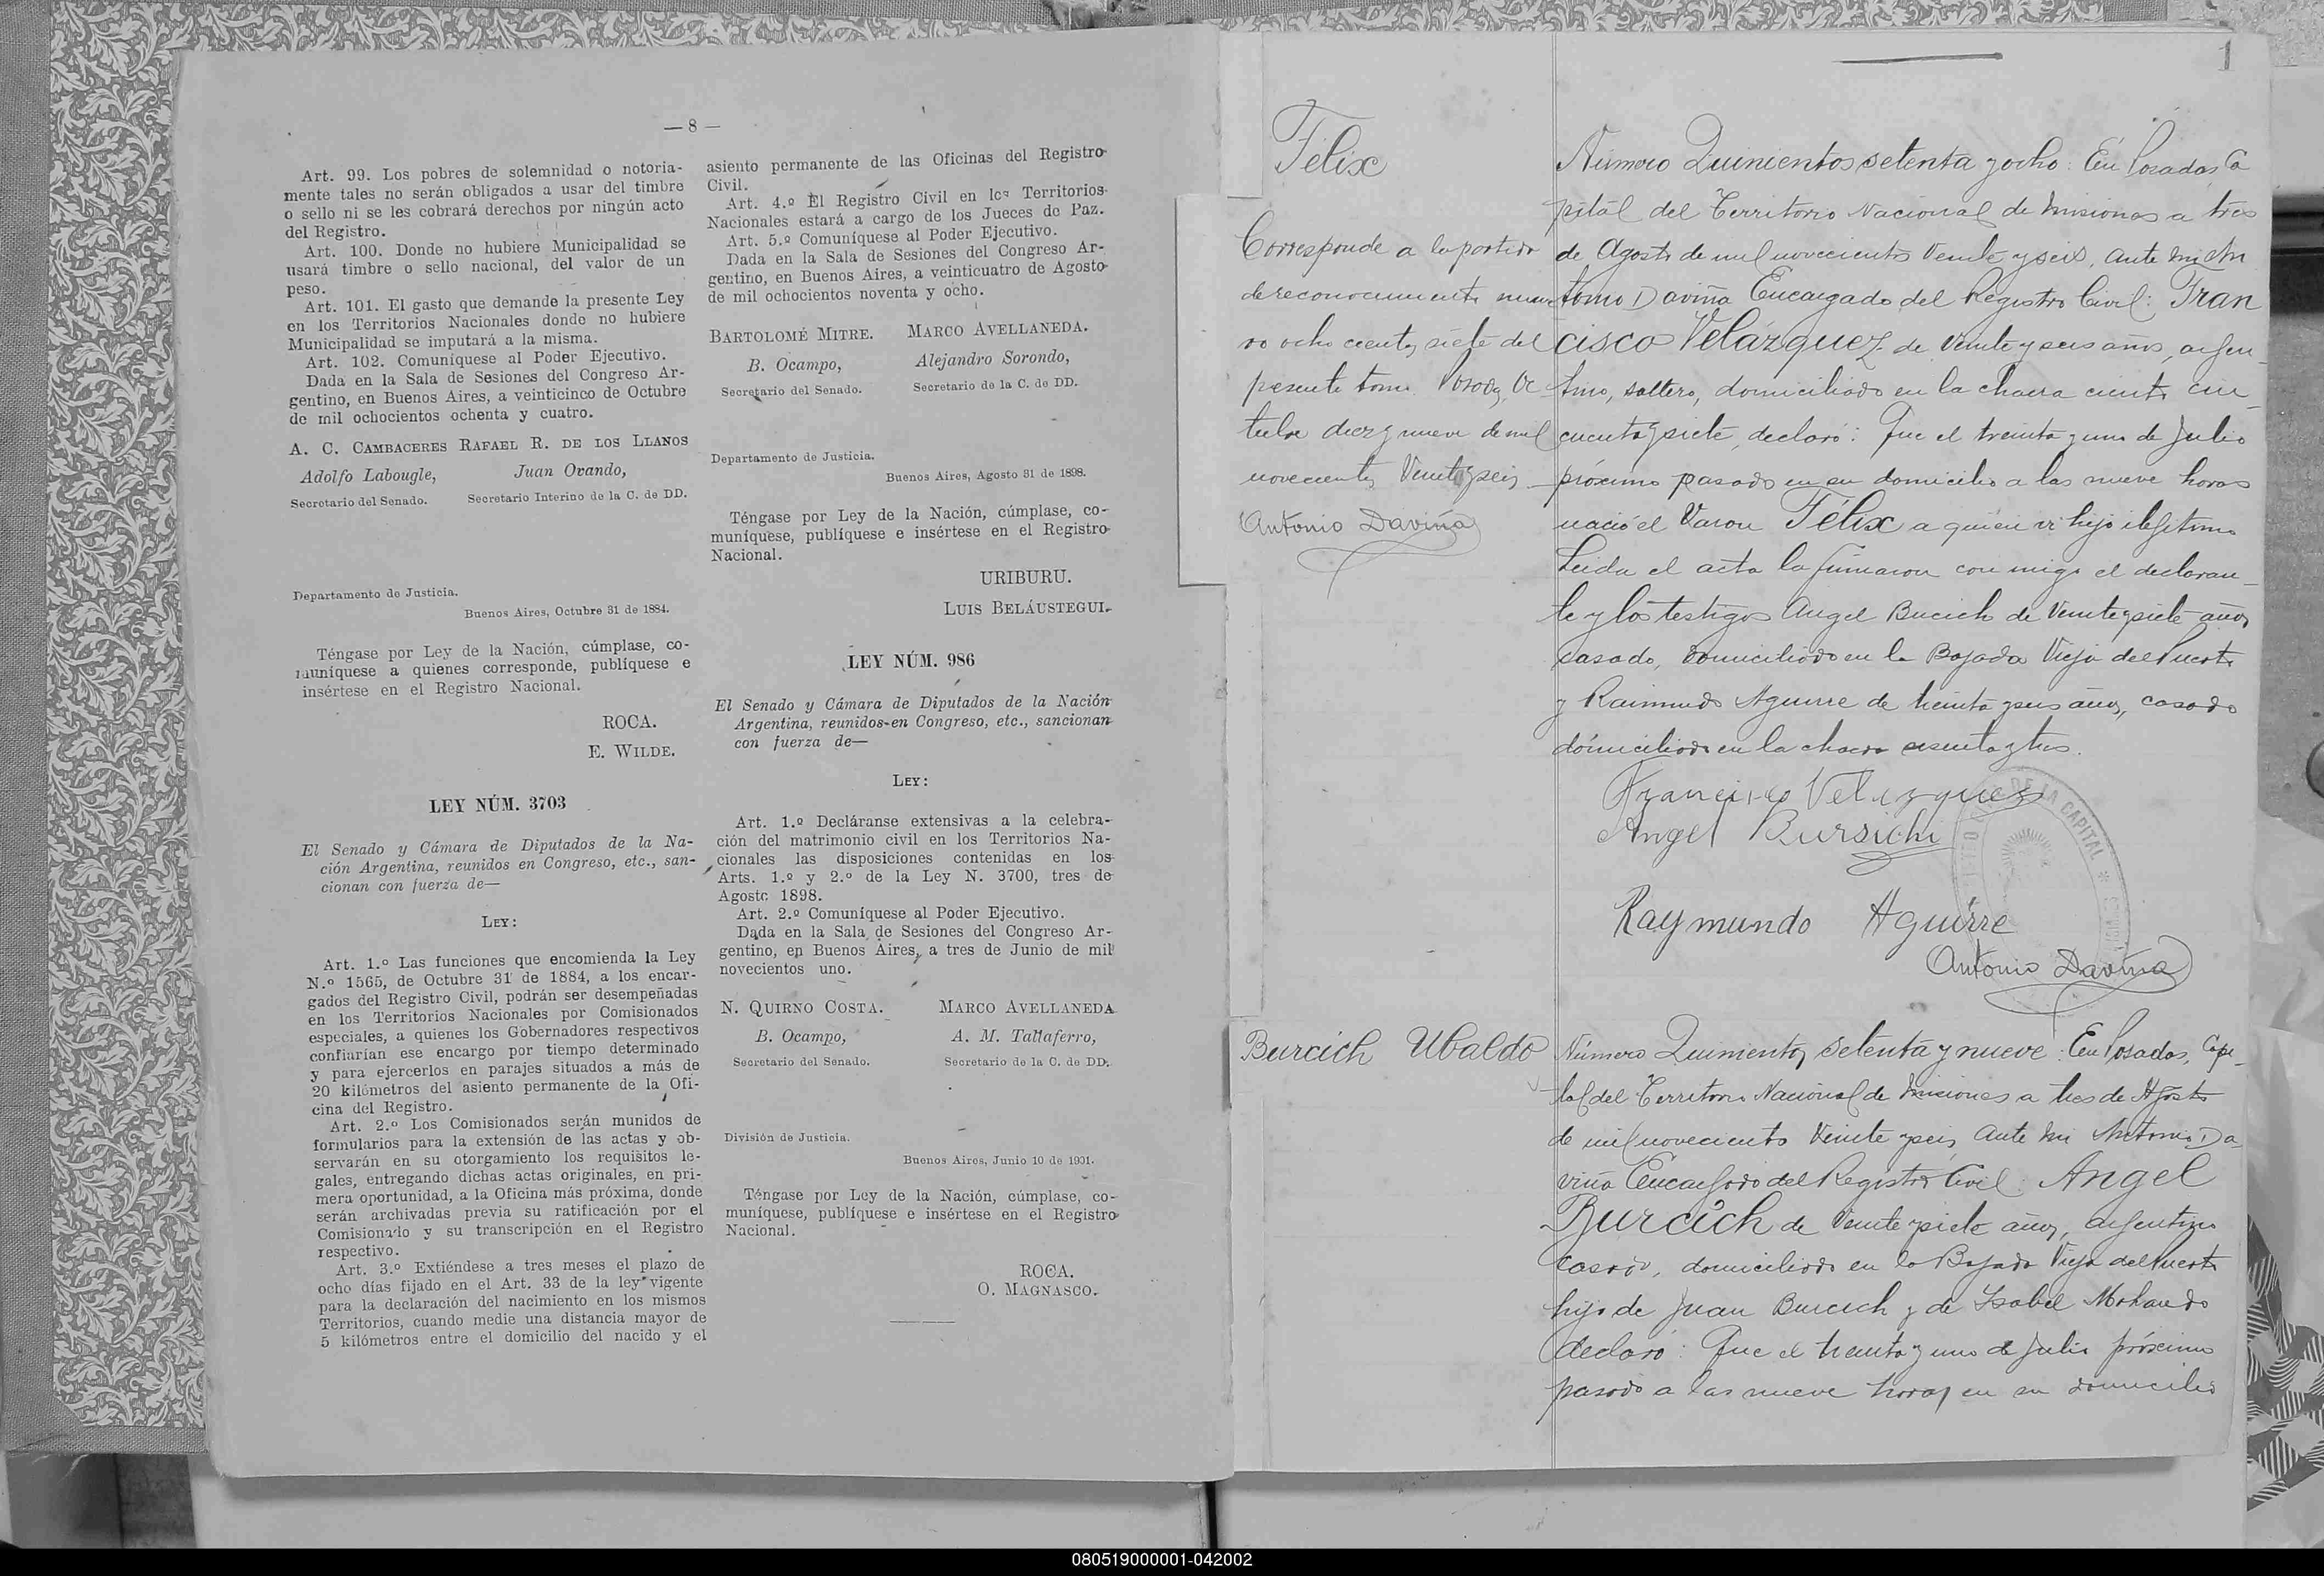 — 8 —
Art. 99. Los pobres de solemnidad o notoria-
mente tales no serán obligados a usar del timbre
o sello ni se les cobrará derechos por ningún acto
del Registro.
Art. 100. Donde no hubiere Municipalidad se
usará timbre o sello nacional, del valor de un
peso.
Art. 101. El gasto que demande la presente Ley
en los Territorios Nacionales donde no hubiere
Municipalidad se imputará a la misma.
Art. 102. Comuníquese al Poder Ejecutivo.
Dada en la Sala de Sesiones del Congreso Ar-
gentino, en Buenos Aires, a veinticinco de Octubre
de mil ochocientos ochenta y cuatro.
A. C. CAMBACERES RAFAEL R. DE LOS LLANOS
Adolfo Labougle, Juan Ovando,
Secretario del Senado. Secretario Interino de la C. de DD.
Departamento de Justicia.
Buenos Aires, Octubre 31 de 1884.
Téngase por Ley de la Nación, cúmplase, co-
muníquese a quienes corresponde, publíquese e
insértese en el Registro Nacional.
ROCA.
E. WILDE.
LEY NÚM. 3703
El Senado y Cámara de Diputados de la Na-
ción Argentina, reunidos en Congreso, etc., san-
cionan con fuerza de—
LEY:
Art. 1.º Las funciones que encomienda la Ley
N.º 1565, de Octubre 31 de 1884, a los encar-
gados del Registro Civil, podrán ser desempeñadas
en los Territorios Nacionales por Comisionados
especiales, a quienes los Gobernadores respectivos
confiarían ese encargo por tiempo determinado
y para ejercerlos en parajes situados a más de
20 kilómetros del asiento permanente de la Ofi-
cina del Registro.
Art. 2.º Los Comisionados serán munidos de
formularios para la extensión de las actas y ob-
servarán en su otorgamiento los requisitos le-
gales, entregando dichas actas originales, en pri-
mera oportunidad, a la Oficina más próxima, donde
serán archivadas previa su ratificación por el
Comisionado y su transcripción en el Registro
respectivo.
Art. 3.º Extiéndese a tres meses el plazo de
ocho días fijado en el Art. 33 de la ley vigente
para la declaración del nacimiento en los mismos
Territorios, cuando medie una distancia mayor de
5 kilómetros entre el domicilio del nacido y el
asiento permanente de las Oficinas del Registro
Civil.
Art. 4.º El Registro Civil en los Territorios
Nacionales estará a cargo de los Jueces de Paz.
Art. 5.º Comuníquese al Poder Ejecutivo.
Dada en la Sala de Sesiones del Congreso Ar-
gentino, en Buenos Aires, a veinticuatro de Agosto
de mil ochocientos noventa y ocho.
BARTOLOMÉ MITRE. MARCO AVELLANEDA.
B. Ocampo, Alejandro Sorondo,
Secretario del Senado. Secretario de la C. de DD.
Departamento de Justicia.
Buenos Aires, Agosto 31 de 1898.
Téngase por Ley de la Nación, cúmplase, co-
muníquese, publíquese e insértese en el Registro
Nacional.
URIBURU.
LUIS BELÁUSTEGUI.
LEY NÚM. 986
El Senado y Cámara de Diputados de la Nación
Argentina, reunidos en Congreso, etc., sancionan
con fuerza de—
LEY:
Art. 1.º Decláranse extensivas a la celebra-
ción del matrimonio civil en los Territorios Na-
cionales las disposiciones contenidas en los
Arts. 1.º y 2.º de la Ley N. 3700, tres de
Agosto 1898.
Art. 2.º Comuníquese al Poder Ejecutivo.
Dada en la Sala de Sesiones del Congreso Ar-
gentino, en Buenos Aires, a tres de Junio de mil
novecientos uno.
N. QUIRNO COSTA. MARCO AVELLANEDA
B. Ocampo, A. M. Tallaferro,
Secretario del Senado. Secretario de la C. de DD.
División de Justicia.
Buenos Aires, Junio 10 de 1901.
Téngase por Ley de la Nación, cúmplase, co-
muníquese, publíquese e insértese en el Registro
Nacional.
ROCA.
O. MAGNASCO.
1
Félix
Corresponde a la partida
de reconocimiento nume
ro ocho cientos siete del
presente tomo. Posadas, Oc
tubre diez y nueve de mil
novecientos Veinte y seis
Antonio Daviña
Número Quinientos setenta y ocho: En Posadas Ca
pital del Territorio Nacional de Misiones a tres
de Agosto de mil novecientos Veinte y seis, ante mi An
tonio Daviña Encargado del Registro Civil: Fran
cisco Velázquez de veinte y seis años, argen-
tino, soltero, domiciliado en la chacra ciento cin-
cuenta y siete, declaró: Que el treinta y uno de Julio
próximo pasado en su domicilio a las nueve horas
nació el Varon Félix a quien vi hijo ilegítimo
Leida el acta la firmaron con migo el declaran-
te y los testigos Angel Bucich de Veinte y siete años
casado, domiciliado en la Bajada Vieja del Puerto
y Raimundo Aguirre de treinta y seis años, casado
domiciliado en la chacra sesenta y tres.
Francisco Velazquez
Angel Bursichi
Raymundo Aguirre
Antonio Daviña
DE LA CAPITAL *
Burcich Ubaldo
Número Quinientos setenta y nueve: En Posadas, Capi-
tal del Territorio Nacional de Misiones a tres de Agosto
de mil novecientos Veinte y seis, ante mi Antonio Da
viña Encargado del Registro Civil: Angel
Burcich de Veinte y siete años, argentino
casado, domiciliado en la Bajada Vieja del Puerto
hijo de Juan Burcich y de Isabel
declaró: Que el treinta y uno de Julio próximo
pasado a las nueve horas en su domicilio
080519000001-042002